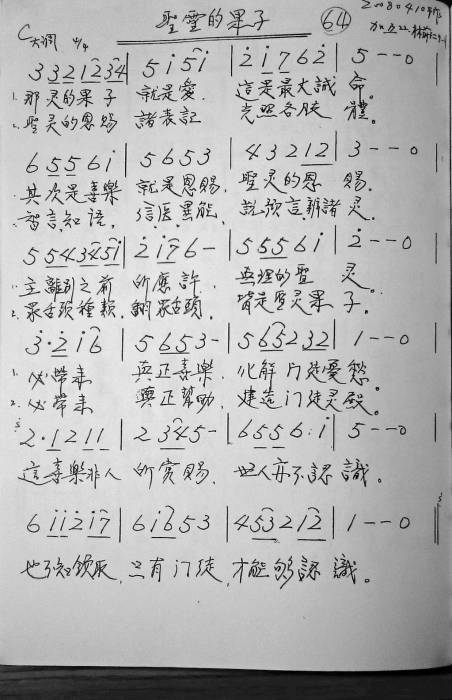 聖靈的果子 64 20080410
C大調 4/4 加五22. 林前
3 3 2 1 2 3 4 | 5 i 5 i | 2 i 7 6 2 | 5 - - 0
1. 那灵的果子 就是愛. 這是最大誡 命。
2. 聖灵的恩賜 諸表記 光照各肢 體。
6 5 5 6 i | 5 6 5 3 | 4 3 2 1 2 | 3 - - 0
其次是喜樂 就是恩賜. 聖灵的恩 賜.
智言知語, 信医異能, 説預言辨諸 灵.
5 5 4 3 4 5 i | 2 i 7 6 - | 5 5 5 6 i | 2 - - 0
1. 主離别之前 所應許. 真理的聖 灵.
2. 眾舌頭種類, 翻眾舌頭. 皆是聖灵果 子。
3 · 2 i 6 | 5 6 5 3 - | 5 6 5 2 3 2 | 1 - - 0
1. 必带来 真正喜樂. 化解门徒憂愁。
2. 必带来 真正幫助. 建造门徒灵殿。
2 · 1 2 1 1 | 2 3 4 5 - | 6 5 5 6 : i | 5 - - 0
這喜樂非人 所賞賜. 世人亦不認 識。
6 i i 2 i 7 | 6 i 6 5 3 | 4 5 3 2 1 2 | 1 - - 0
也不知領取, 只有门徒, 才能够認 識。